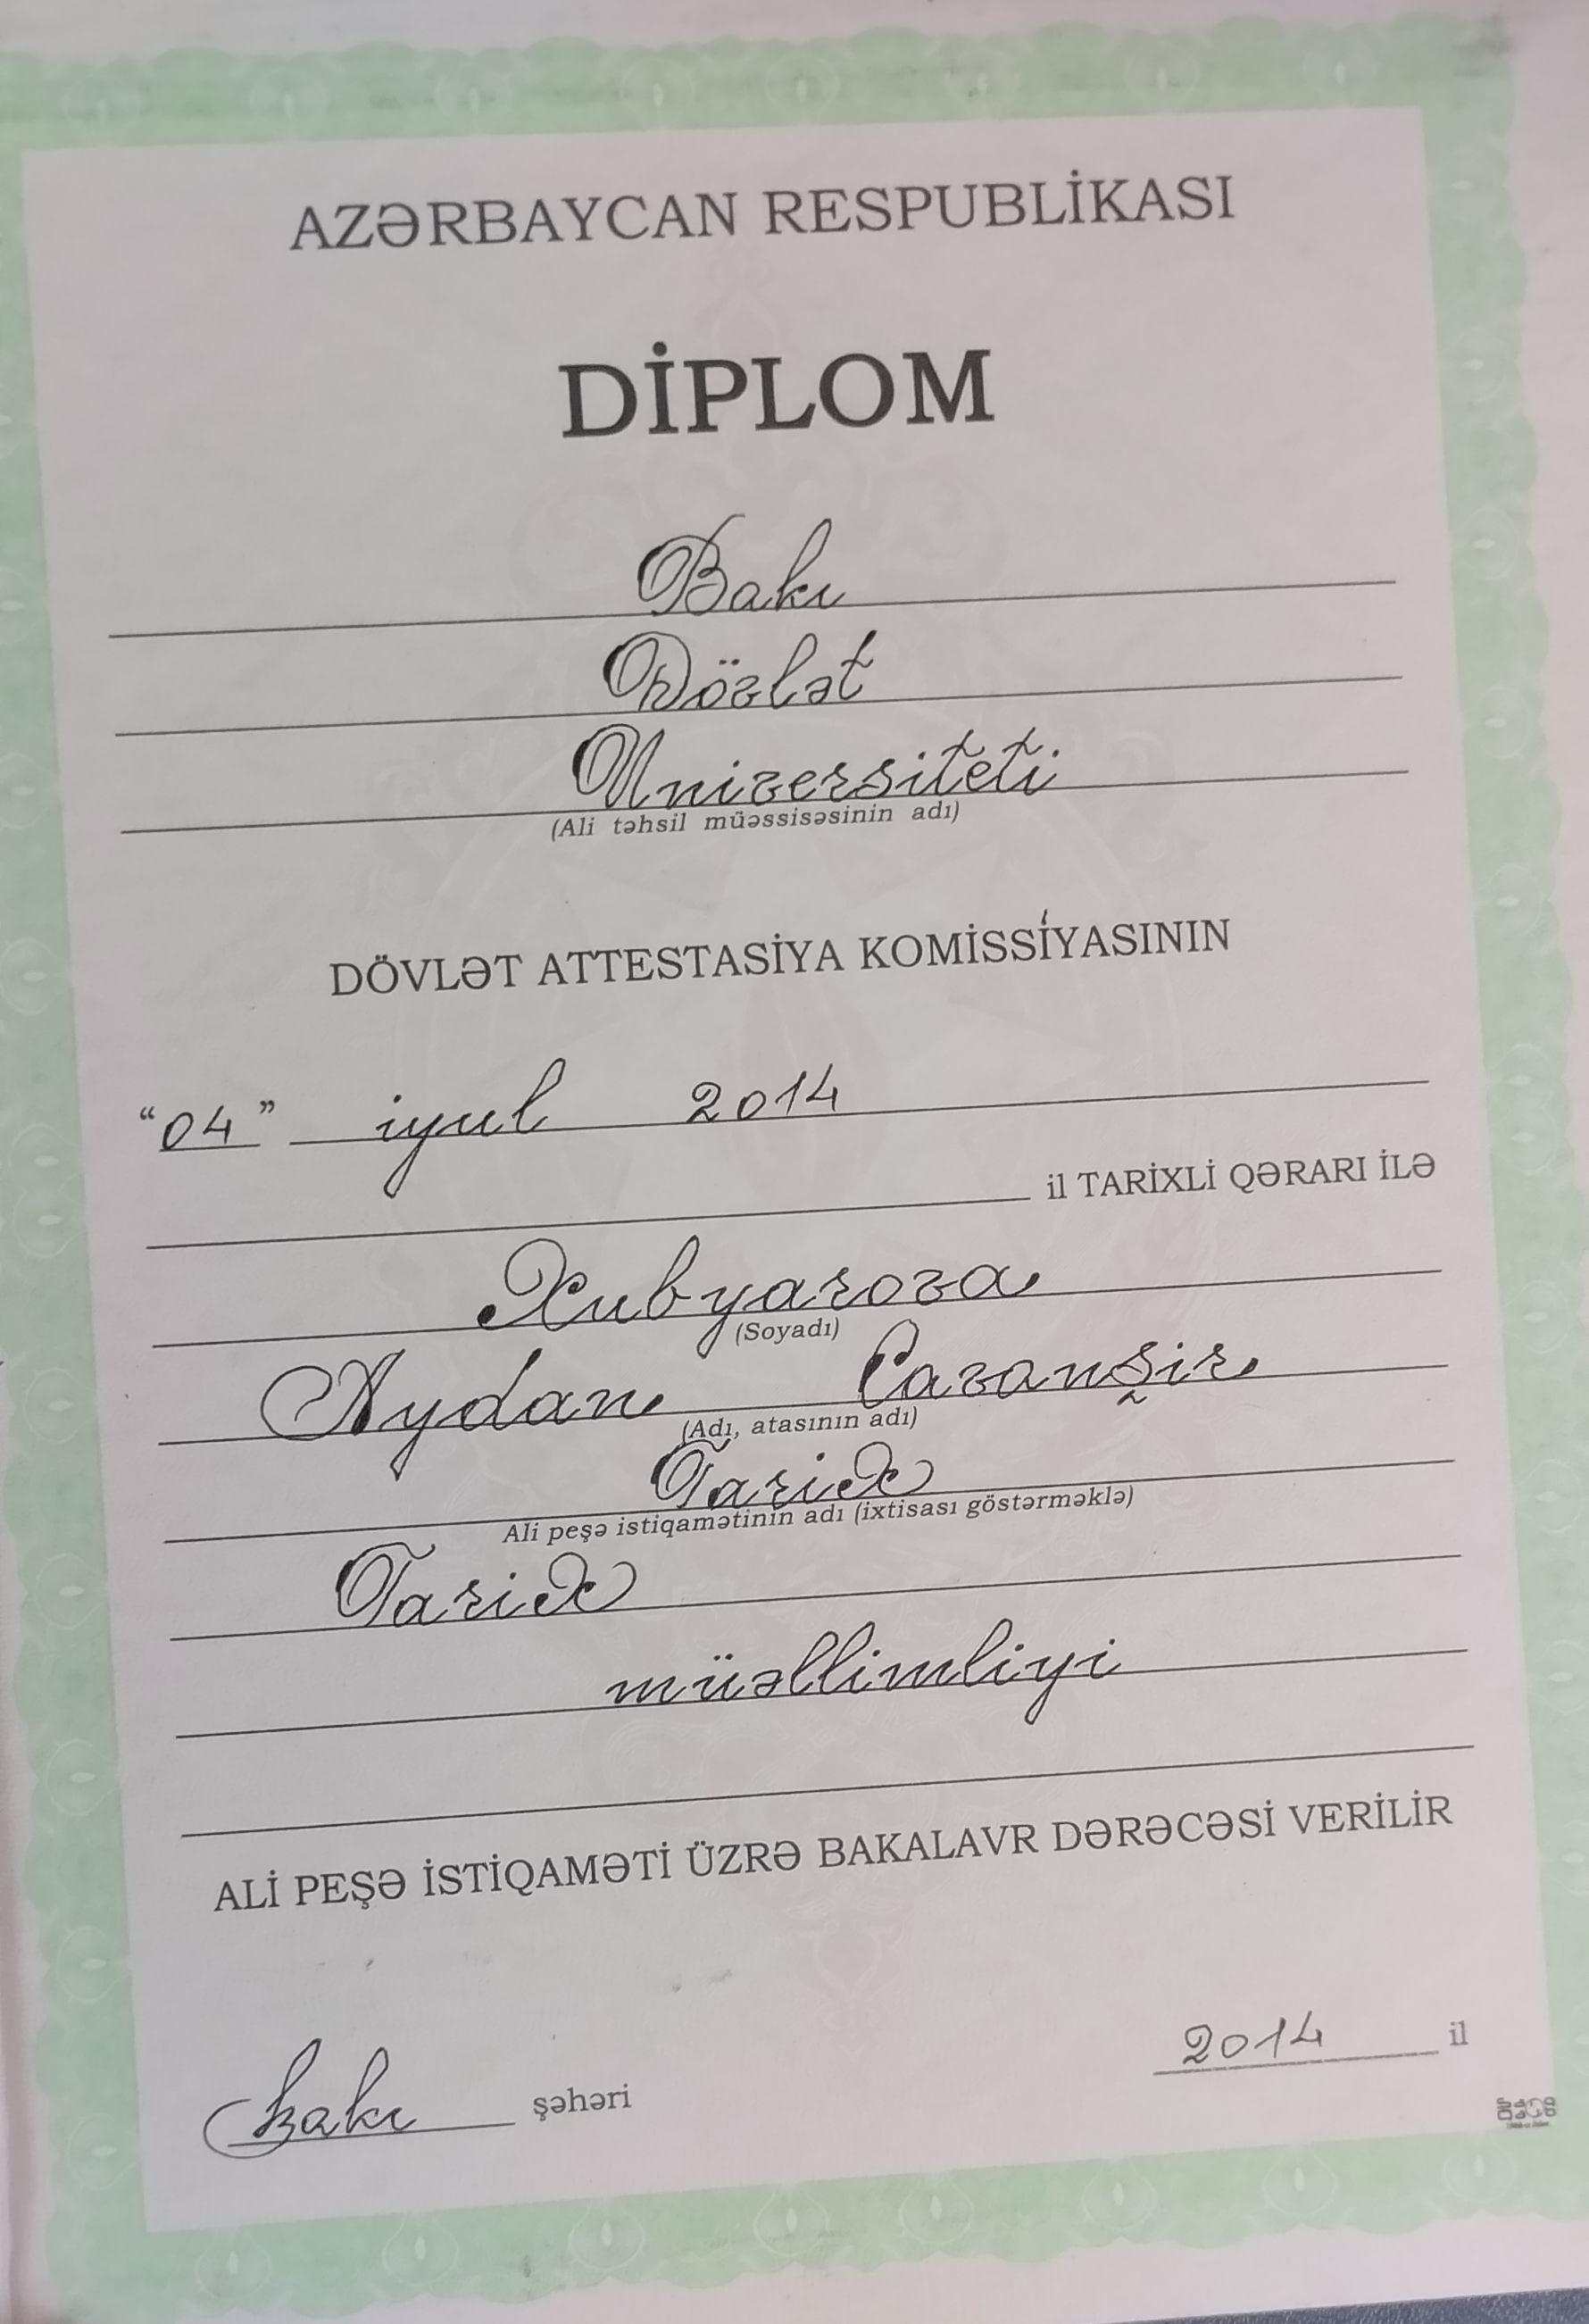 AZƏRBAYCAN RESPUBLİKASI
DİPLOM
Bakı
Dövlət
Universiteti
(Ali təhsil müəssisəsinin adı)
DÖVLƏT ATTESTASİYA KOMİSSİYASININ
“04” iyul 2014
il TARİXLİ QƏRARI İLƏ
Xubyarova
(Soyadı)
Aydan Cavanşir
(Adı, atasının adı)
Tarix
Ali peşə istiqamətinin adı (ixtisası göstərməklə)
Tarix
müəllimliyi
ALİ PEŞƏ İSTİQAMƏTİ ÜZRƏ BAKALAVR DƏRƏCƏSİ VERİLİR
Bakı şəhəri 2014 il